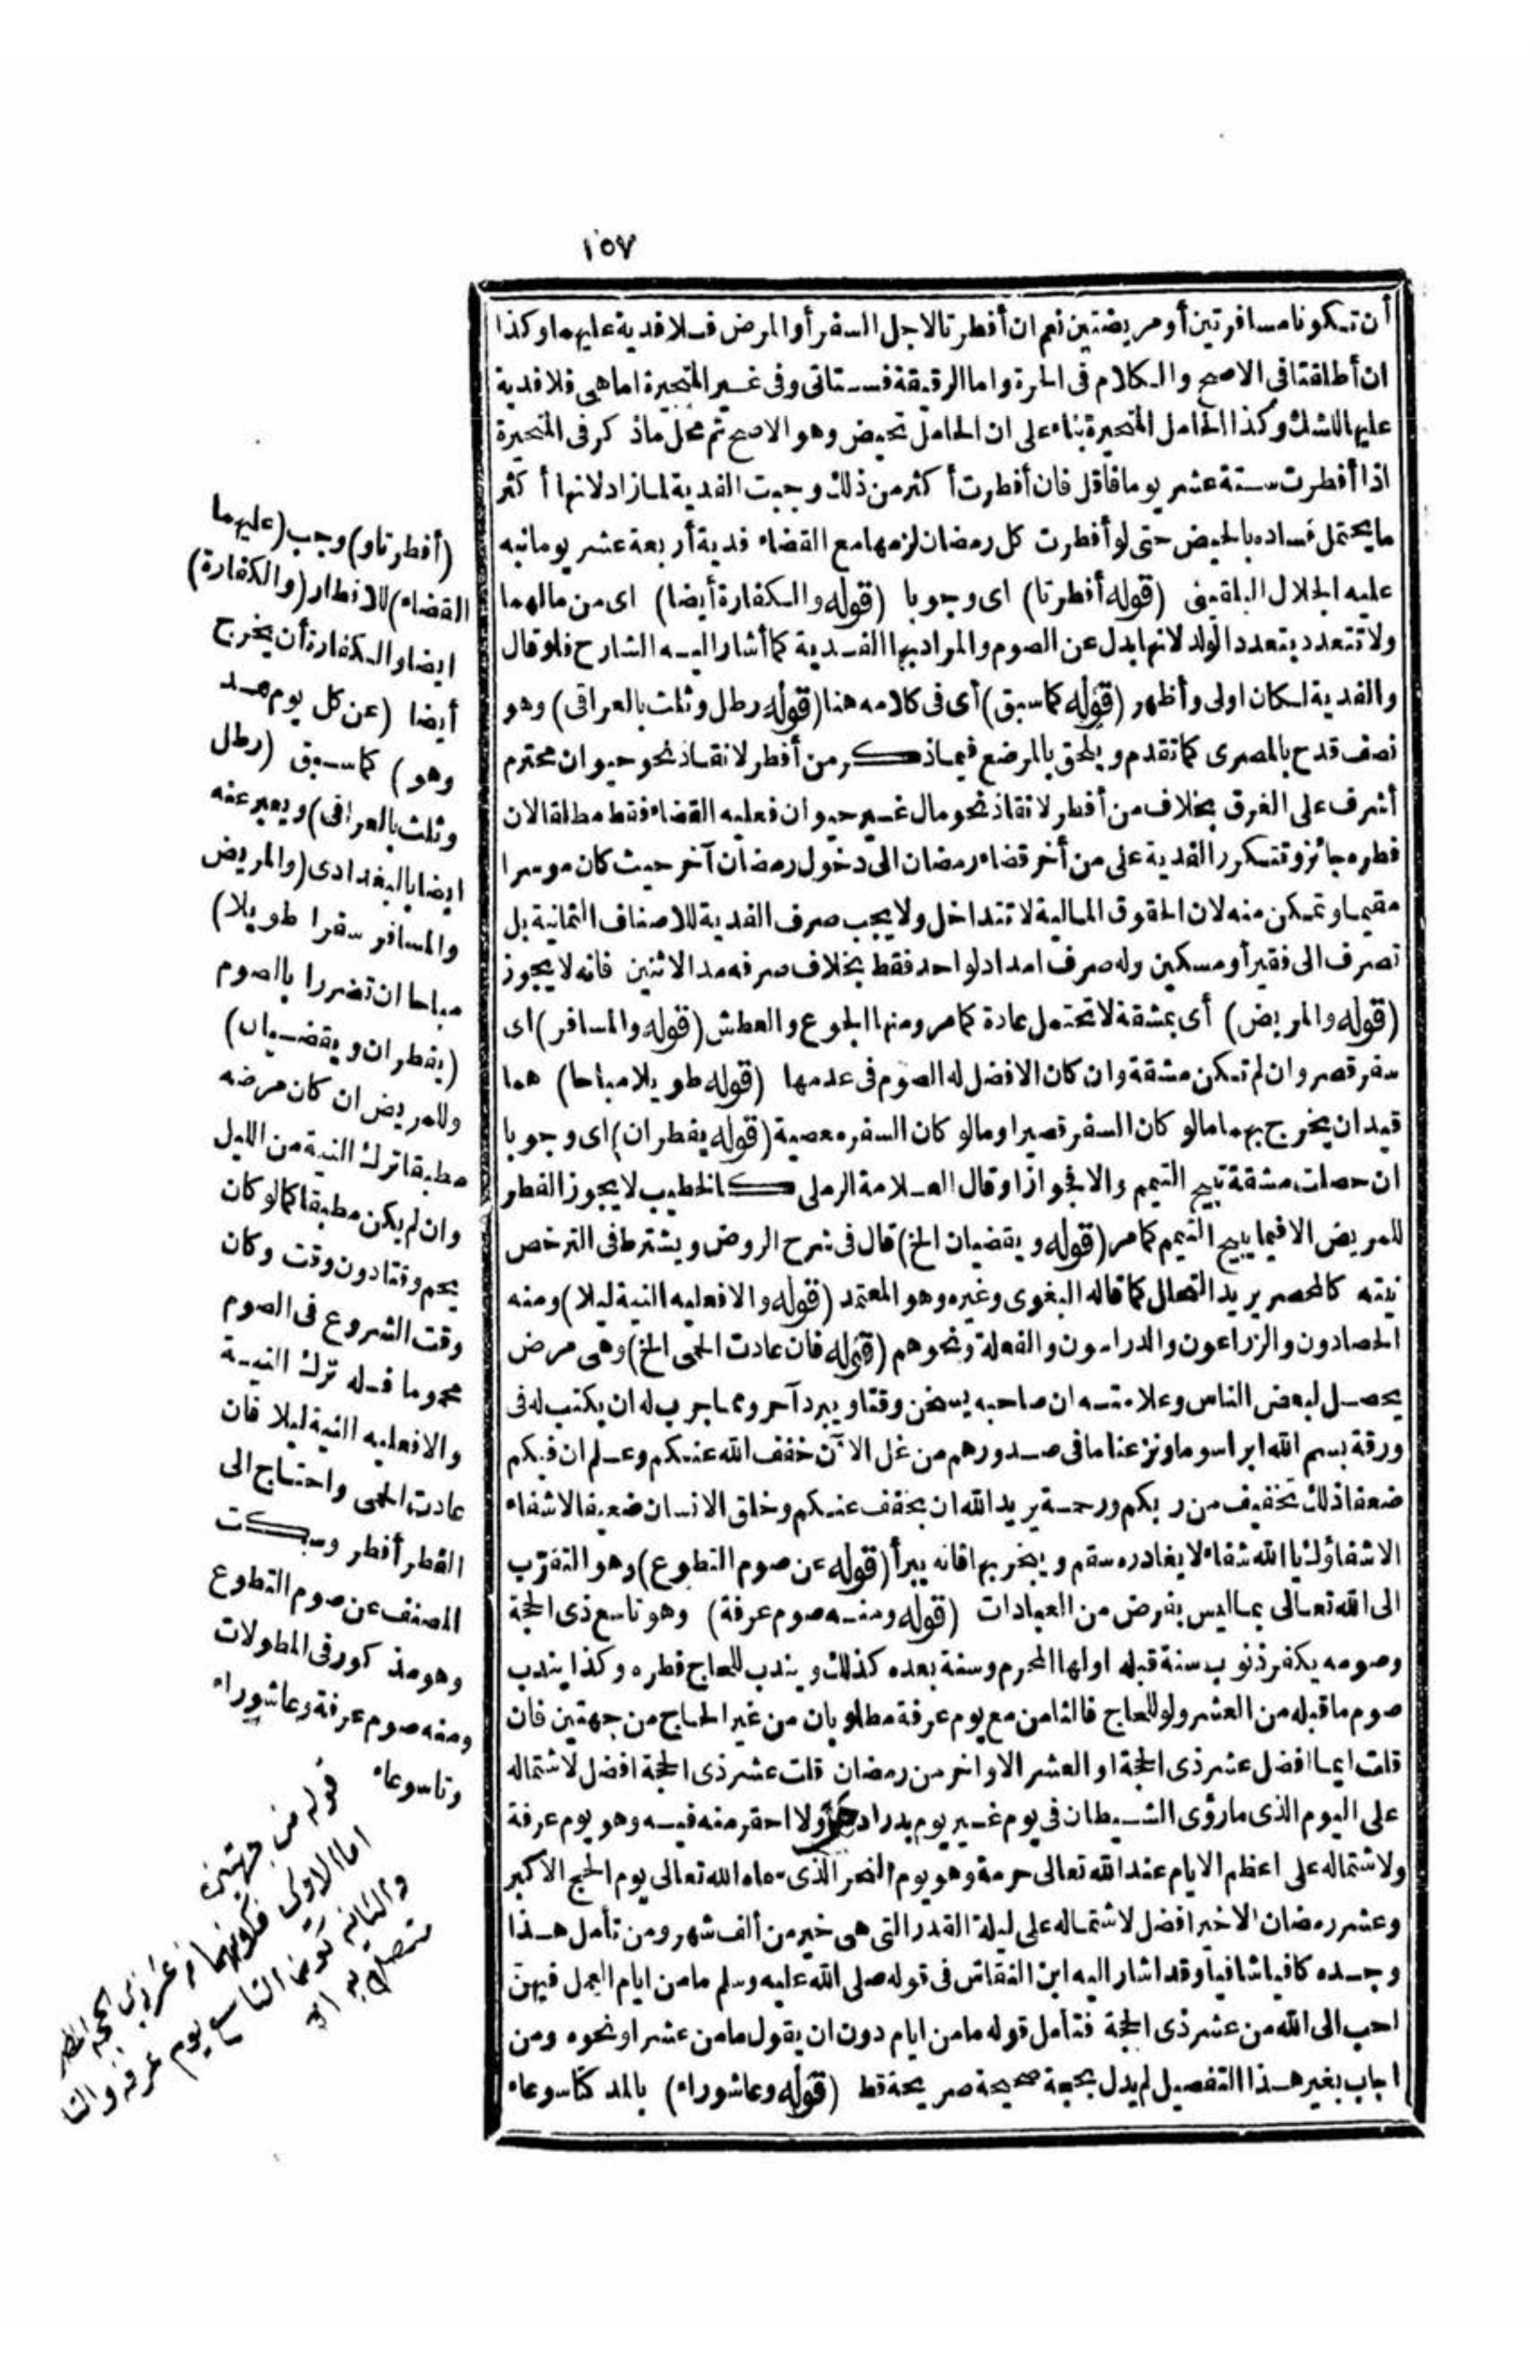 ١٥٧
أن تكونا مسافرتين أو مريضتين نعم ان أفطرتا لاجل السفر أو المرض فلا فدية عليهما وكذا
ان أطلقتا فى الاصح والكلام فى الحرة واما الرقيقة فستاتى وفى غير المتحيرة اما هى فلا فدية
عليها للشك وكذا الحامل المتحيرة بناء على ان الحامل تحيض وهو الاصح ثم محل ماذ كر فى المتحيرة
اذا أفطرت ستة عشر يوما فاقل فان أفطرت أكثر من ذلك وجبت الفدية لما زاد لانها أكثر
ما يحتمل فساده بالحيض حتى لو أفطرت كل رمضان لزمها مع القضاء فدية أربعة عشر يوما نبه
عليه الجلال البلقينى (قوله أفطرتا) اى وجوبا (قوله والكفارة أيضا) اى من مالهما
ولا تتعدد بتعدد الولد لانها بدل عن الصوم والمراد بها الفدية كما أشار اليه الشارح فلو قال
والفدية لكان اولى وأظهر (قوله كما سبق) أى فى كلامه هنا (قوله رطل وثلث بالعراقى) وهو
نصف قدح بالمصرى كما تقدم ويلحق بالمرضع فيما ذكر من أفطر لانقاذ نحو حيوان محترم
أشرف على الغرق بخلاف من أفطر لانقاذ نحو مال غير حيوان فعليه القضاء فقط مطلقا لان
فطره جائز وتتكرر الفدية على من أخر قضاء رمضان الى دخول رمضان آخر حيث كان موسرا
مقيما وتمكن منه لان الحقوق المالية لا تتداخل ولا يجب صرف الفدية للاصناف الثمانية بل
تصرف الى فقير أو مسكين وله صرف امداد لواحد فقط بخلاف صرفه مد الاثنين فانه لا يجوز
(قوله والمريض) أى بمشقة لا تحتمل عادة كما مر ومنها الجوع والعطش (قوله والمسافر) اى
سفر قصر وان لم تكن مشقة وان كان الافضل له الصوم فى عدمها (قوله طويلا مباحا) هما
قيدان يخرج بهما ما لو كان السفر قصيرا وما لو كان السفر معصية (قوله يفطران) اى وجوبا
ان حصلت مشقة تبيح التيمم والا فجوازا وقال العلامة الرملى كالخطيب لا يجوز الفطر
للمريض الا فيما يبيح التيمم كما مر (قوله ويقضيان الخ) قال فى شرح الروض ويشترط فى الترخص
نيته كالمحصر يريد التحلل كما قاله البغوى وغيره وهو المعتمد (قوله والا فعليه النية ليلا) ومنه
الحصادون والزراعون والدراسون والفعلة ونحوهم (قوله فان عادت الحمى الخ) وهى مرض
يحصل لبعض الناس وعلامته ان صاحبه يسخن وقتا ويبرد آخر ومما جرب له ان يكتب له فى
ورقة بسم الله ابراسوما ونزعنا ما فى صدورهم من غل الآن خفف الله عنكم وعلم ان فيكم
ضعفا ذلك تخفيف من ربكم ورحمة يريد الله ان يخفف عنكم وخلق الانسان ضعيفا لا شفاء
الا شفاؤك يا الله شفاء لا يغادره سقم ويبخر بها فانه يبرأ (قوله عن صوم التطوع) وهو التقرب
الى الله تعالى بما ليس بفرض من العبادات (قوله ومنه صوم عرفة) وهو تاسع ذى الحجة
وصومه يكفر ذنوب سنة قبله اولها المحرم وسنة بعده كذلك ويندب للحاج فطره وكذا يندب
صوم ما قبله من العشر ولو للحاج فالثامن مع يوم عرفة مطلوبان من غير الحاج من جهتين فان
قلت ايما افضل عشر ذى الحجة او العشر الاواخر من رمضان قلت عشر ذى الحجة افضل لاشتماله
على اليوم الذى ما رؤى الشيطان فى يوم غير يوم بدر ادحر ولا احقر منه فيه وهو يوم عرفة
ولاشتماله على اعظم الايام عند الله تعالى حرمة وهو يوم النحر الذى سماه الله تعالى يوم الحج الاكبر
وعشر رمضان الاخير افضل لاشتماله على ليلة القدر التى هى خير من ألف شهر ومن تأمل هذا
وجده كافيا شافيا وقد اشار اليه ابن النقاش فى قوله صلى الله عليه وسلم ما من ايام العمل فيهن
احب الى الله من عشر ذى الحجة فتأمل قوله ما من ايام دون ان يقول ما من عشر او نحوه ومن
اجاب بغير هذا التفصيل لم يدل بحجة صحيحة صريحة قط (قوله وعاشوراء) بالمد كتاسوعاء
(أفطرتا و) وجب (عليهما
القضاء) للافطار (والكفارة)
ايضا والكفارة أن يخرج
أيضا (عن كل يوم مد
وهو) كما سبق (رطل
وثلث بالعراقى) ويعبر عنه
ايضا بالبغدادى (والمريض
والمسافر سفرا طويلا)
مباحا ان تضررا بالصوم
(يفطران ويقضيان)
وللمريض ان كان مرضه
مطبقا ترك النية من الليل
وان لم يكن مطبقا كما لو كان
يحم وقتا دون وقت وكان
وقت الشروع فى الصوم
محموما فله ترك النية
والا فعليه النية ليلا فان
عادت الحمى واحتاج الى
الفطر أفطر وسكت
المصنف عن صوم التطوع
وهو مذكور فى المطولات
ومنه صوم عرفة وعاشوراء
وتاسوعاء
قوله من جهتين
اما الاولى فكونهما من عشر ذى الحجة
والثانية كون التاسع يوم عرفة والثا
متصل به اه